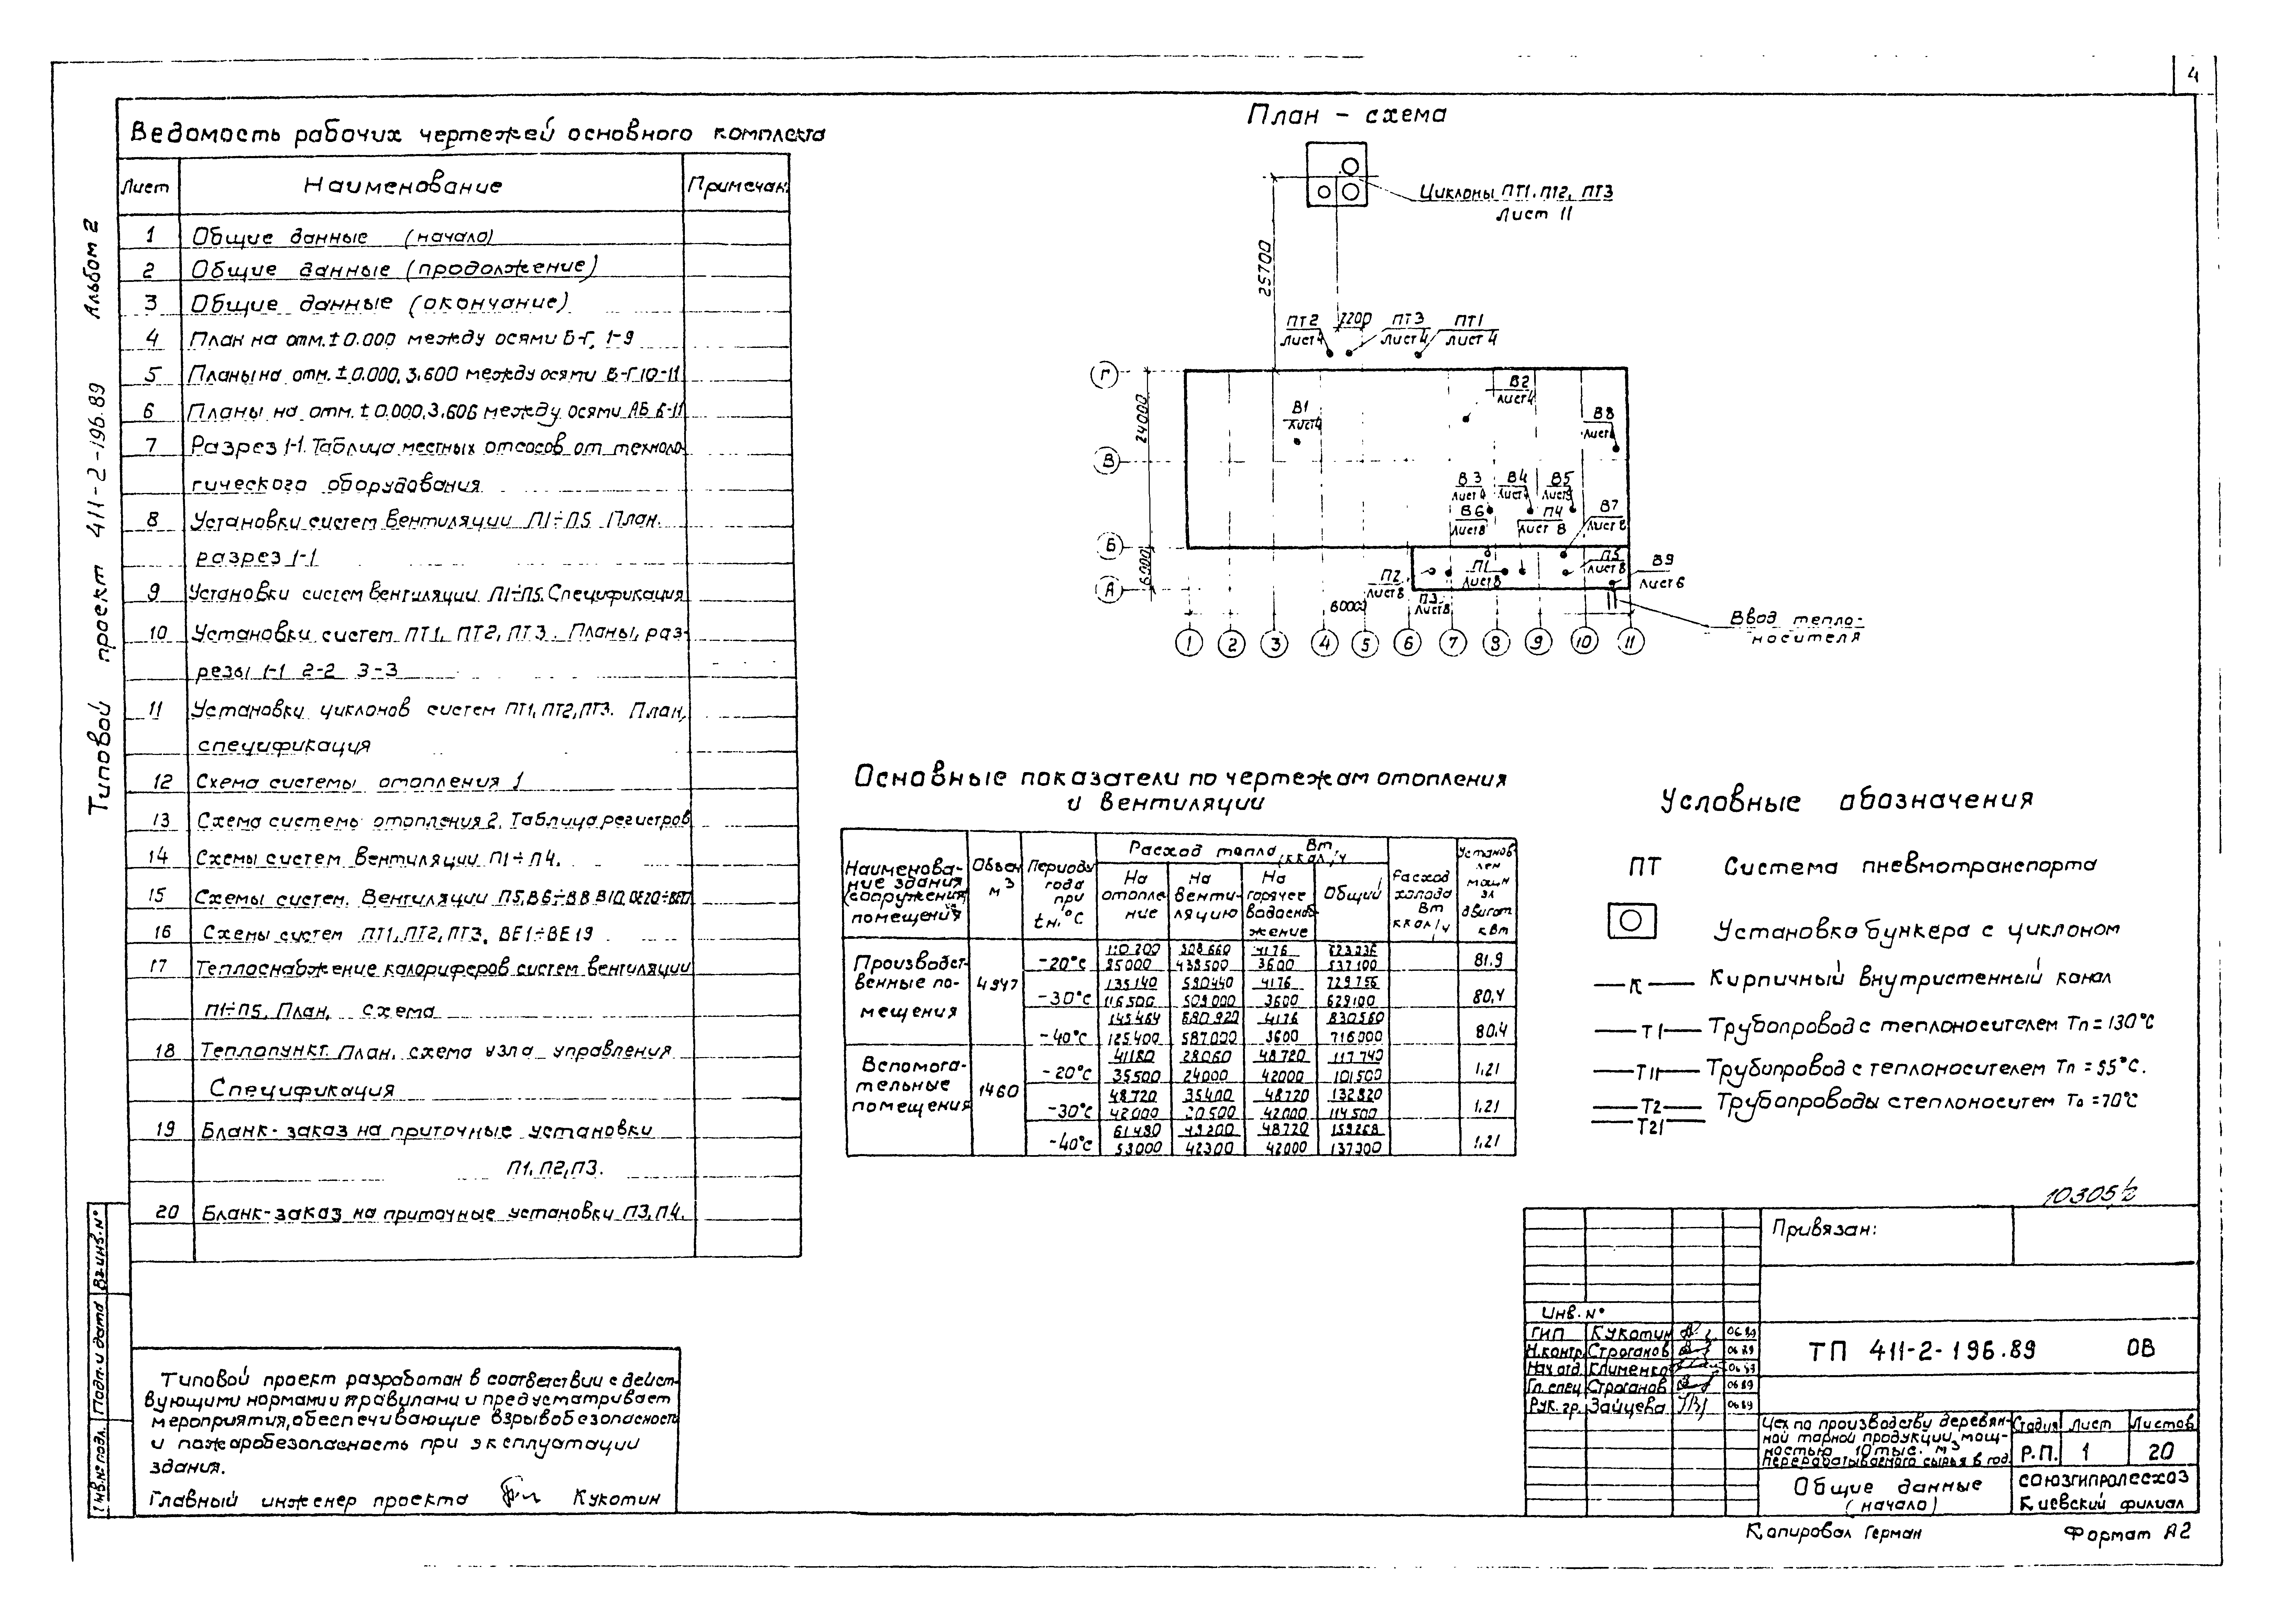 4
Альбом 2
Типовой проект 411-2-196.89
Ведомость рабочих чертежей основного комплекта
Лист Наименование Примечан.
1 Общие данные (начало)
2 Общие данные (продолжение)
3 Общие данные (окончание)
4 План на отм. ±0.000 между осями Б-Г, 1-9
5 Планы на отм. ±0.000, 3.600 между осями В-Г 10-11
6 Планы на отм. ±0.000, 3.606 между осями АБ 6-11
7 Разрез 1-1. Таблица местных отсосов от техноло-
гического оборудования
8 Установки систем вентиляции П1÷П5 План.
разрез 1-1
9 Установки систем вентиляции П1÷П5. Спецификация
10 Установки систем ПТ1, ПТ2, ПТ3. Планы, раз-
резы 1-1 2-2 3-3
11 Установки циклонов систем ПТ1, ПТ2, ПТ3. План,
спецификация
12 Схема системы отопления 1
13 Схема системы отопления 2. Таблица регистров
14 Схемы систем вентиляции П1÷П4.
15 Схемы систем. Вентиляции П5, В6÷В8 В10,
16 Схемы систем ПТ1, ПТ2, ПТ3, ВЕ1÷ВЕ19
17 Теплоснабжение калориферов систем вентиляции
П1÷П5. План, схема
18 Теплопункт. План, схема узла управления
Спецификация
19 Бланк-заказ на приточные установки
П1, П2, П3.
20 Бланк-заказ на приточные установки П3, П4.
План - схема
Циклоны ПТ1, ПТ2, ПТ3
Лист 11
25700
ПТ2 2200 ПТ3 ПТ1
Лист 4 Лист 4 Лист 4
Г
В
Б
А
24000
6000
60000
В1
Лист 4
В2
Лист 4
В8
В3 В4 В5
Лист 4
В6 П4 В7
Лист 8 Лист 8 Лист 8
П2
Лист 8
П3
Лист 8
П1
Лист 8
П5
Лист 8
В9
Лист 6
Ввод тепло-
носителя
1 2 3 4 5 6 7 8 9 10 11
Основные показатели по чертежам отопления
и вентиляции
Наименова-
ние здания
(сооружения)
помещения
Объем
м3
Периоды
года
при
tн, °С
Расход тепла, Вт (ккал/ч
На
отопле-
ние
На
венти-
ляцию
На
горячее
водоснаб-
жение
Общий
Расход
холода
Вт
ккал/ч
Установ-
лен
мощн
эл
двигат
кВт
Производст-
венные по-
мещения
4947
-20°С 438500 3600 537100 81.9
135140 590440 4176 729756
-30°С 116500 509000 3600 629100 80,4
145464 680920 4176 830560
-40°С 125400 587000 3600 716000 80.4
Вспомога-
тельные
помещения
1460
41180 28060 48720 117740
-20°С 35500 24000 42000 101500 1.21
48720 35400 48720 132820
-30°С 42000 30500 42000 114500 1.21
61480 49200 48720 159268
-40°С 53000 42300 42000 137300 1.21
Условные обозначения
ПТ Система пневмотранспорта
Установка бункера с циклоном
К Кирпичный внутристенный канал
Т1 Трубопровод с теплоносителем Тп = 130°С
Т11 Трубопровод с теплоносителем Тп = 95°С.
Т2 Трубопроводы с теплоноситем То = 70°С
Т21
10305/2
Привязан:
Инв. №
ГИП Кукотин 06.89
Н.контр. Строганов 06 89
Нач отд. Клименко 06 89
Гл. спец Строганов 06 89
Рук. гр. Зайцева 06 89
ТП 411-2-196.89 ОВ
Цех по производству деревян-
ной тарной продукции, мощ-
ностью 10 тыс. м3
перерабатываемого сырья в год
Стадия Лист Листов
Р.П. 1 20
Общие данные
(начало)
СОЮЗГИПРОЛЕСХОЗ
Киевский филиал
Копировал Герман
Формат А2
Типовой проект разработан в соответствии с дейст-
вующими нормами и правилами и предусматривает
мероприятия, обеспечивающие взрывобезопасность
и пожаробезопасность при эксплуатации
здания.
Главный инженер проекта Кукотин
Инв. № подл. Подп. и дата Вз. инв. №